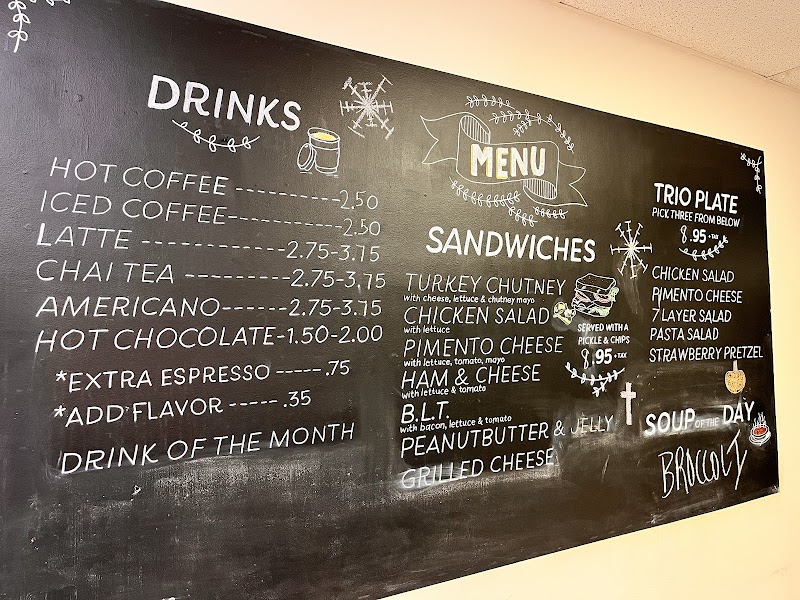 DRINKS
HOT COFFEE ----------2.50
ICED COFFEE-----------2.50
LATTE ------------2.75-3.75
CHAI TEA ---------2.75-3.75
AMERICANO------2.75-3.75
HOT CHOCOLATE-1.50-2.00
*EXTRA ESPRESSO -----.75
*ADD FLAVOR -----.35
DRINK OF THE MONTH
MENU
SANDWICHES
TURKEY CHUTNEY
with cheese, lettuce & chutney mayo
CHICKEN SALAD
with lettuce
PIMENTO CHEESE
with lettuce, tomato, mayo
HAM & CHEESE
with lettuce & tomato
B.L.T.
with bacon, lettuce & tomato
PEANUTBUTTER & JELLY
GRILLED CHEESE
SERVED WITH A
PICKLE & CHIPS
8.95 + TAX
TRIO PLATE
PICK THREE FROM BELOW
8.95 + TAX
CHICKEN SALAD
PIMENTO CHEESE
7 LAYER SALAD
PASTA SALAD
STRAWBERRY PRETZEL
SOUP OF THE DAY
BROCCOLI